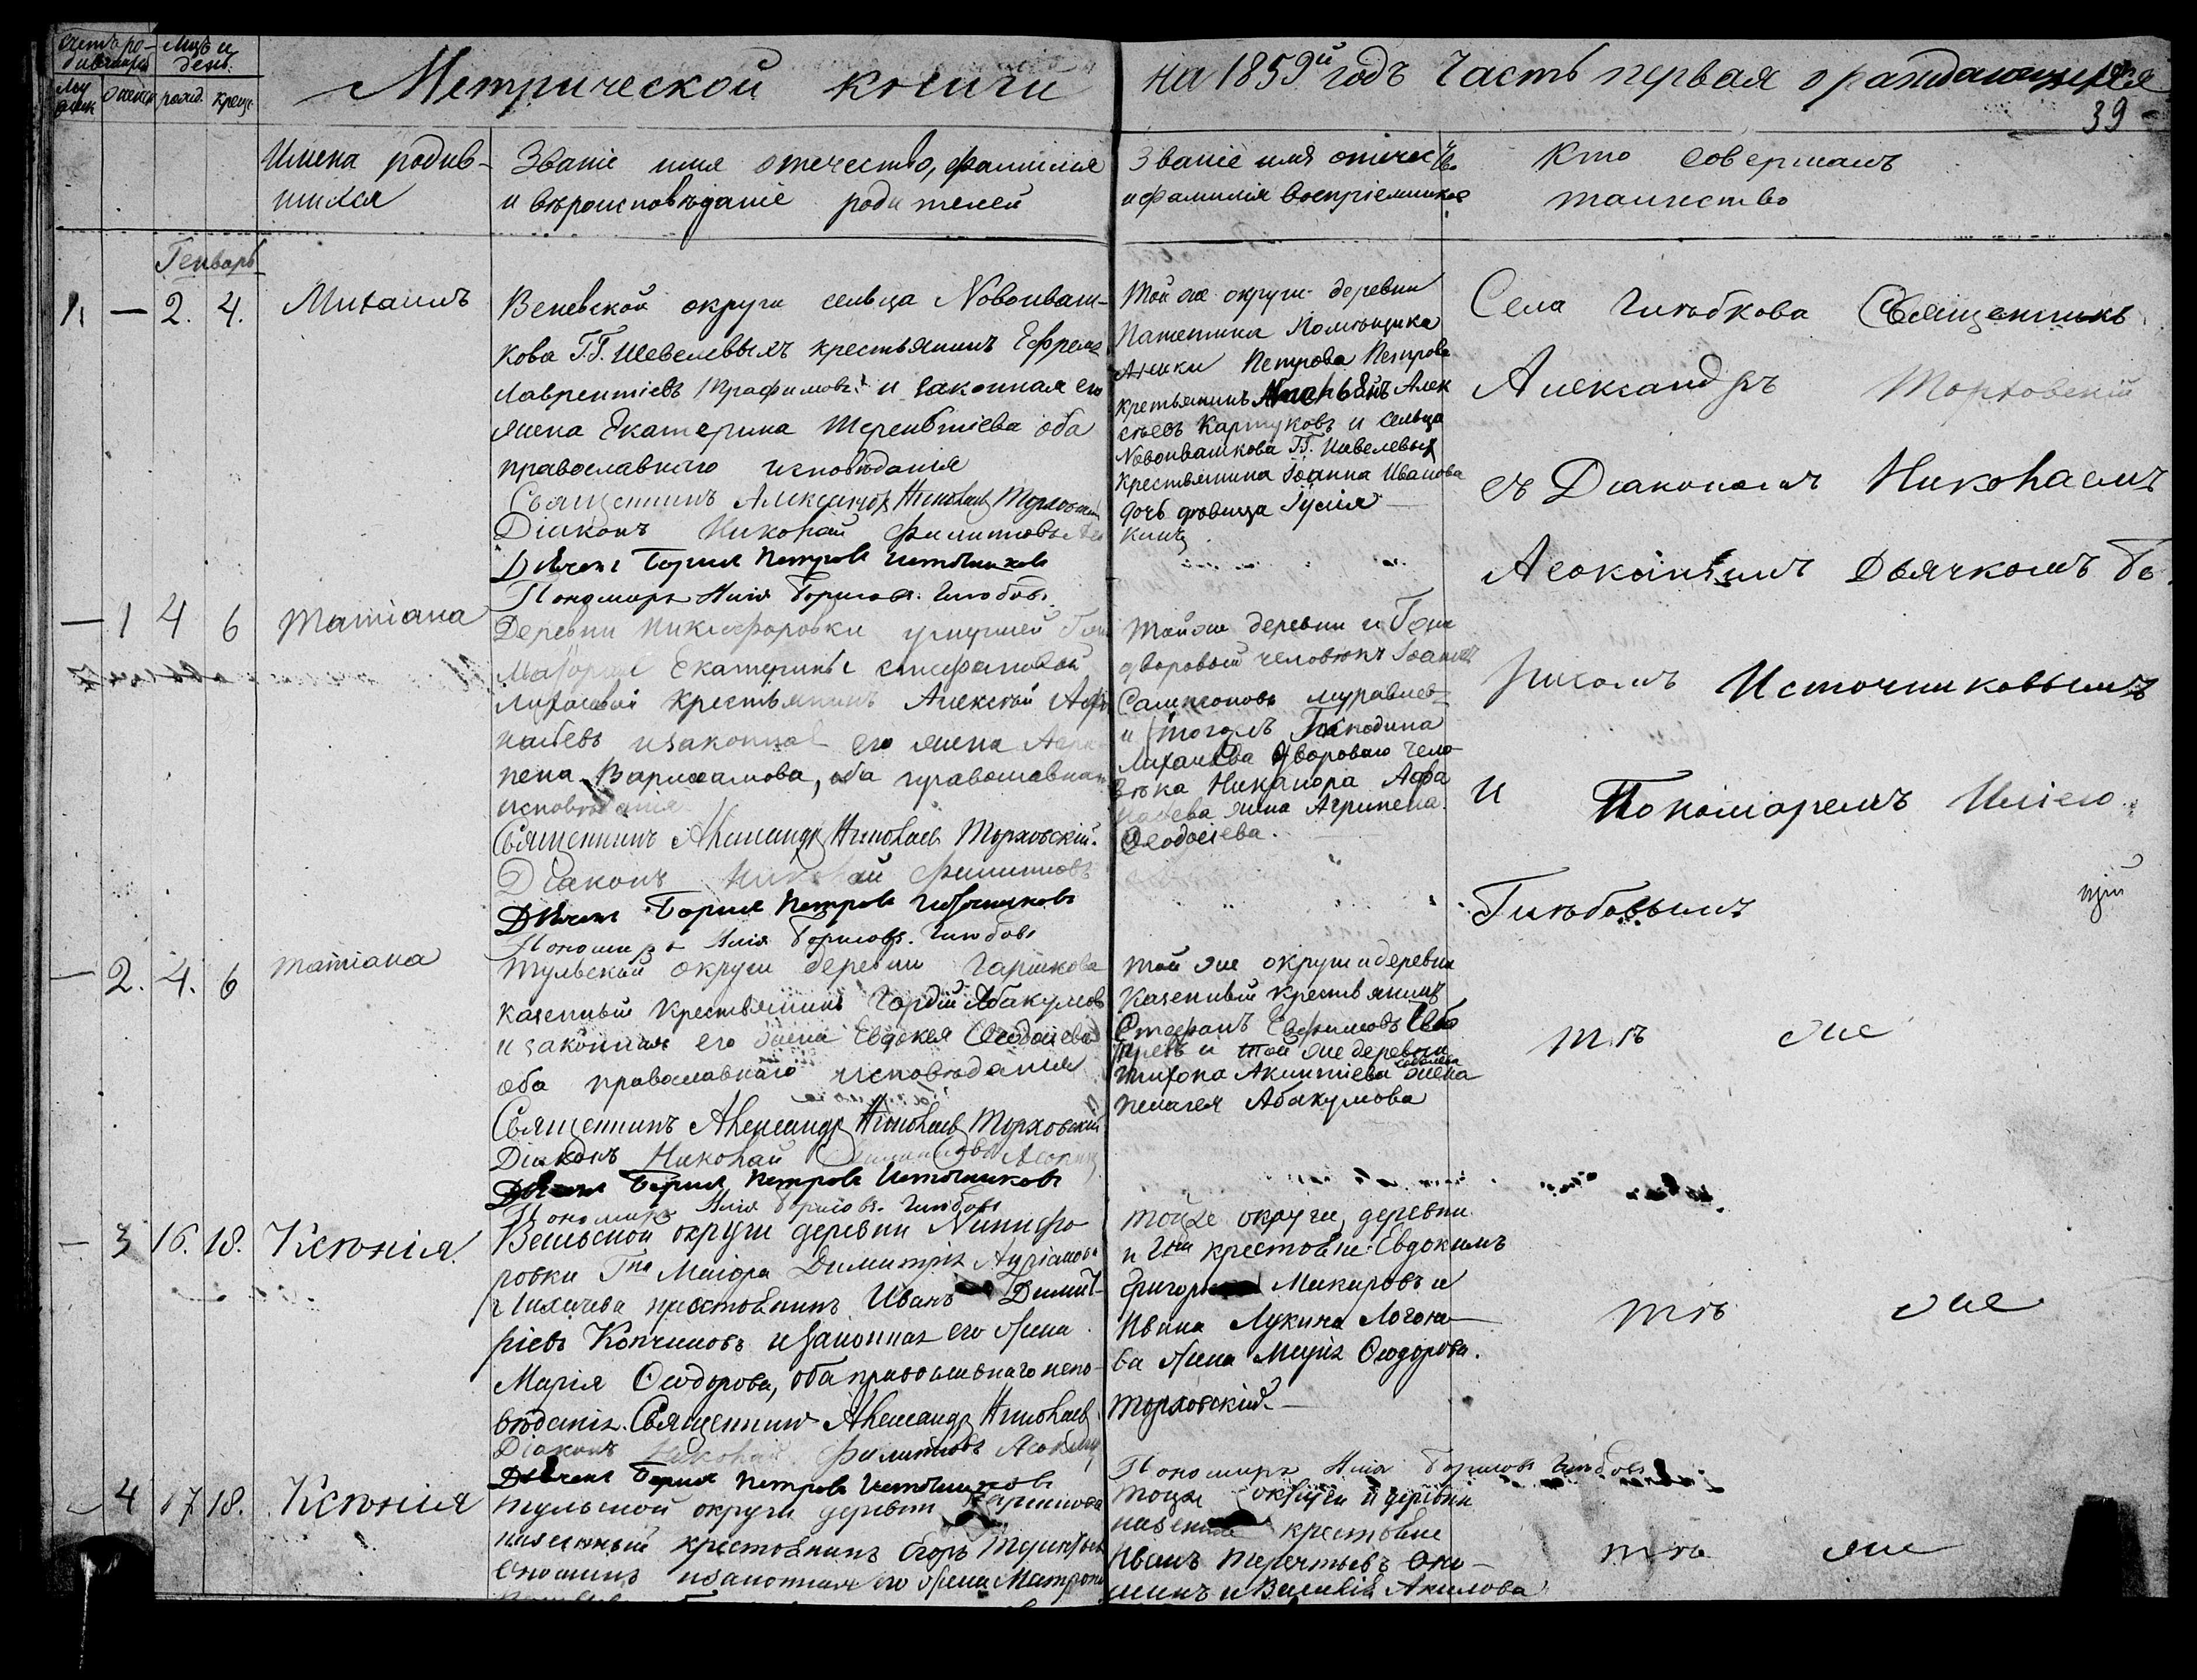 Счетъ ро-
дившихся
Мѣсц и
день.
рожд.
крещ.
Метрической книги
на 1859й годъ Часть первая о раждающихся
39
Имена родив-
шихся
Званіе имя отечество, фамилія
и вѣроисповѣданіе родителей
Званіе имя отечество
и фамилія воспріемниковъ
Кто совершалъ
таинство
Генварь
1. — 2. 4. Михаилъ
Веневской округи сельца Новоиваш-
кова Г.Г. Шевелевыхъ крестьянинъ Ефремъ
Лаврентіевъ Трафимовъ и законная его
жена Екатерина Терентіева оба
православнаго исповѣданія
Священникъ Александръ Николаевъ Торховскій
Діаконъ Николай Филиповъ
Дьячекъ Борисъ Петровъ Источниковъ
Пономарь Илія Борисовъ Глѣбовъ
Той же округи деревни
Помѣщика
Петрова Петрова
крестьянинъ Алек
сѣевъ Картуковъ и сельца
Новоивашкова Г.Г. Шевелевыхъ
крестьянина Іоанна Иванова
дочь дѣвица
Села Глѣбкова Священникъ
Александръ Торховскій
съ Діакономъ Николаемъ
Дьячкомъ Бо
рисомъ Источниковымъ
и Пономаремъ Иліею
Глѣбовымъ
— 1 4 6 Татіана
Деревни Никифоровки умершей
Маіорши Екатерины Стефановой
Лихачевой крестьянинъ Алексѣй Афа
насьевъ и законная его жена Агри
пена Варлаамова, оба православнаго
исповѣданія
Священникъ Александръ Николаевъ Торховскій.
Діаконъ Николай Филиповъ
Дьячекъ Борисъ Петровъ Источниковъ
Пономарь Илія Борисовъ Глѣбовъ
Той же деревни и Гжи
дворовый человѣкъ Іоаннъ
Сампсоновъ Муравлев
и тогожъ Господина
Лихачева двороваго чело
вѣка Никанора Афа
насьева жена Агрипена
Ѳеодосіева.
— 2. 4. 6 Татіана
Тульской округи деревни Гаршкова
казенный крестьянинъ Гордій Абакумовъ
и законная его жена Евдокея Ѳеодосіева
оба православнаго исповѣданія
Священникъ Александръ Николаевъ Торховскій
Діаконъ Николай
Дьячекъ Борисъ Петровъ Источниковъ
Пономарь Илія Борисовъ Глѣбовъ
Той же округи и деревни
казенный крестьянинъ
Стефанъ Евфимовъ
и той же деревни
Тихона Акинтіева жена
Пелагея Абакумова
тѣ же
— 3 16. 18. Ксенія.
Веневской округи деревни Никифо
ровки Гна Маіора Димитрія Андріанова
Лихачева крестьянинъ Иванъ Димит
ріевъ Копчиковъ и законная его жена
Марія Ѳеодорова, оба православнаго испо
вѣданія. Священникъ Александръ Николаевъ
Торховскій.
Діаконъ Николай Филиповъ
Дьячекъ Борисъ Петровъ Источниковъ
Пономарь Илія Борисовъ Глѣбовъ
Тойже округи, деревни
и Гна крестьяне: Евдокимъ
Григорь Макаровъ и
Ивана Лукина
жена Марія Ѳеодорова.
тѣ же
— 4 17 18. Ксенія
Тульской округи деревни Гаршкова
казенный крестьянинъ Егоръ Терентьевъ
и законная его жена Матрона
Тойже округи и деревни
казенные крестьяне
Иванъ Терентьевъ
и Василія Акилова
тѣ же